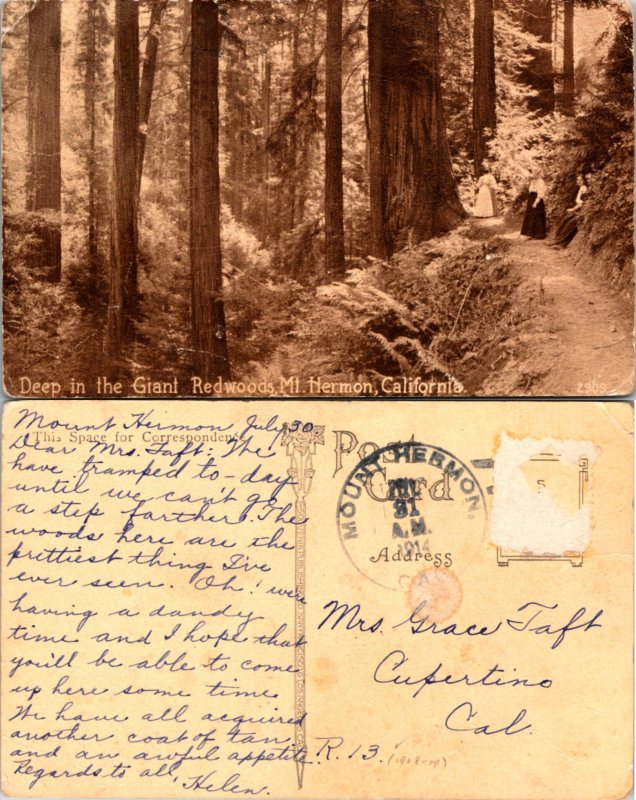 Deep in the Giant Redwoods, Mt. Hermon, California.
2969
Mount Hermon July 30
This Space for Correspondence
Dear Mrs. Taft: We
have tramped to-day
until we can't go
a step farther. The
woods here are the
prettiest thing I've
ever seen. Oh! we're
having a dandy
time and I hope that
you'll be able to come
up here some time
We have all acquired
another coat of tan
and an awful appetite
Regards to all, Helen.
Post
Card
Address
MOUNT HERMON,
31
A.M.
1914
CAL.
Mrs. Grace Taft
Cupertino
Cal.
R. 13.